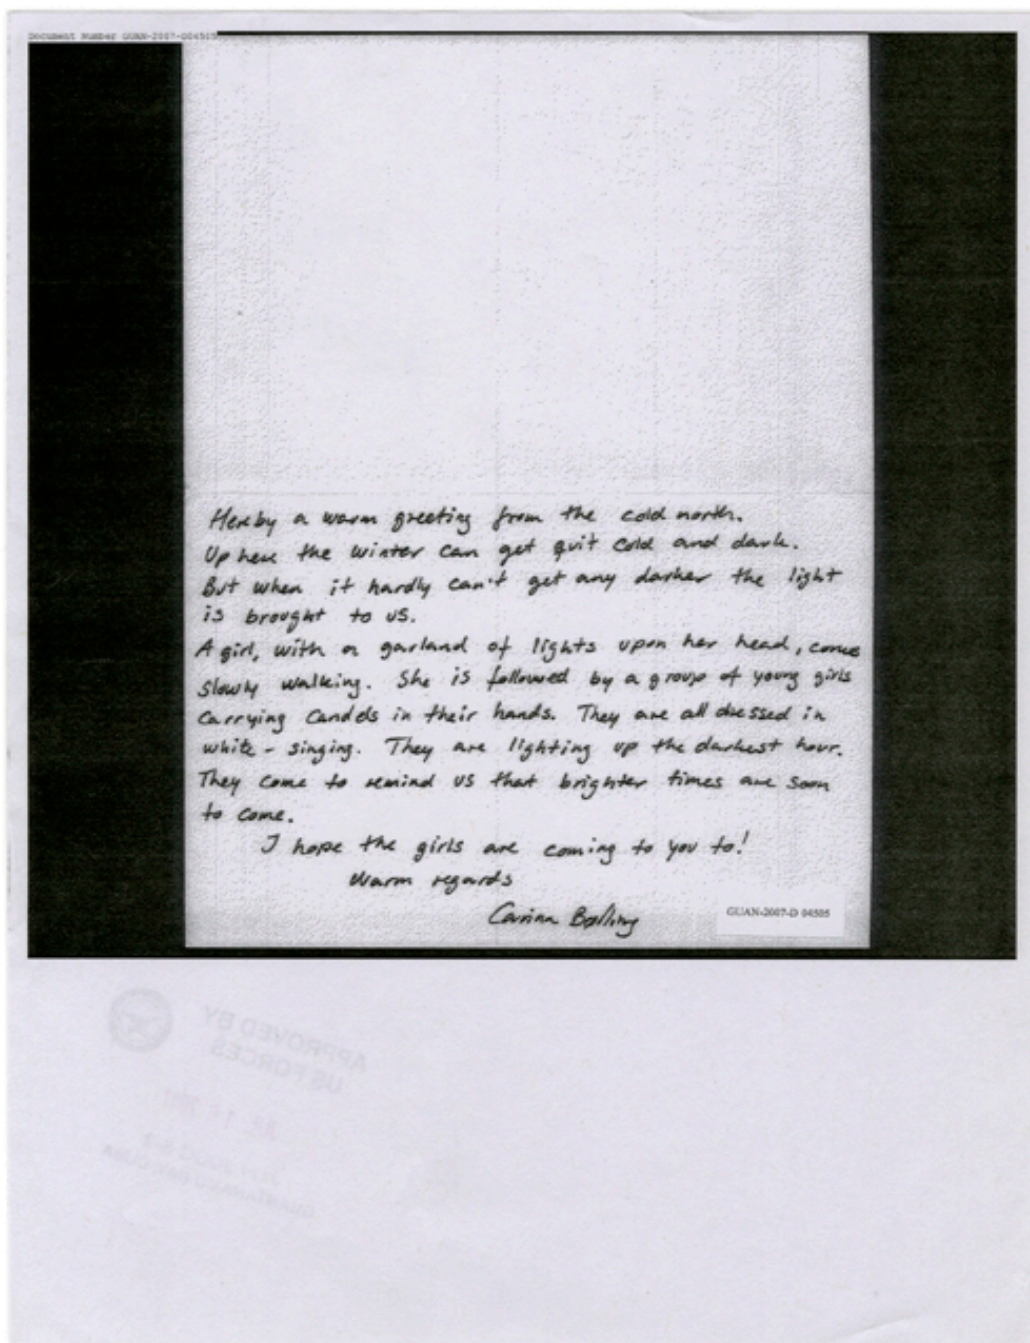 Document Number GUAN-2007-004505
Hereby a warm greeting from the cold north.
Up here the winter can get quit cold and dark.
But when it hardly can't get any darker the light
is brought to us.
A girl, with a garland of lights upon her head, comes
slowly walking. She is followed by a group of young girls
carrying candels in their hands. They are all dressed in
white - singing. They are lighting up the darkest hour.
They come to remind us that brighter times are soon
to come.
I hope the girls are coming to you to!
Warm regards
Carina Bølling
GUAN-2007-D 04505
APPROVED BY
US FORCES